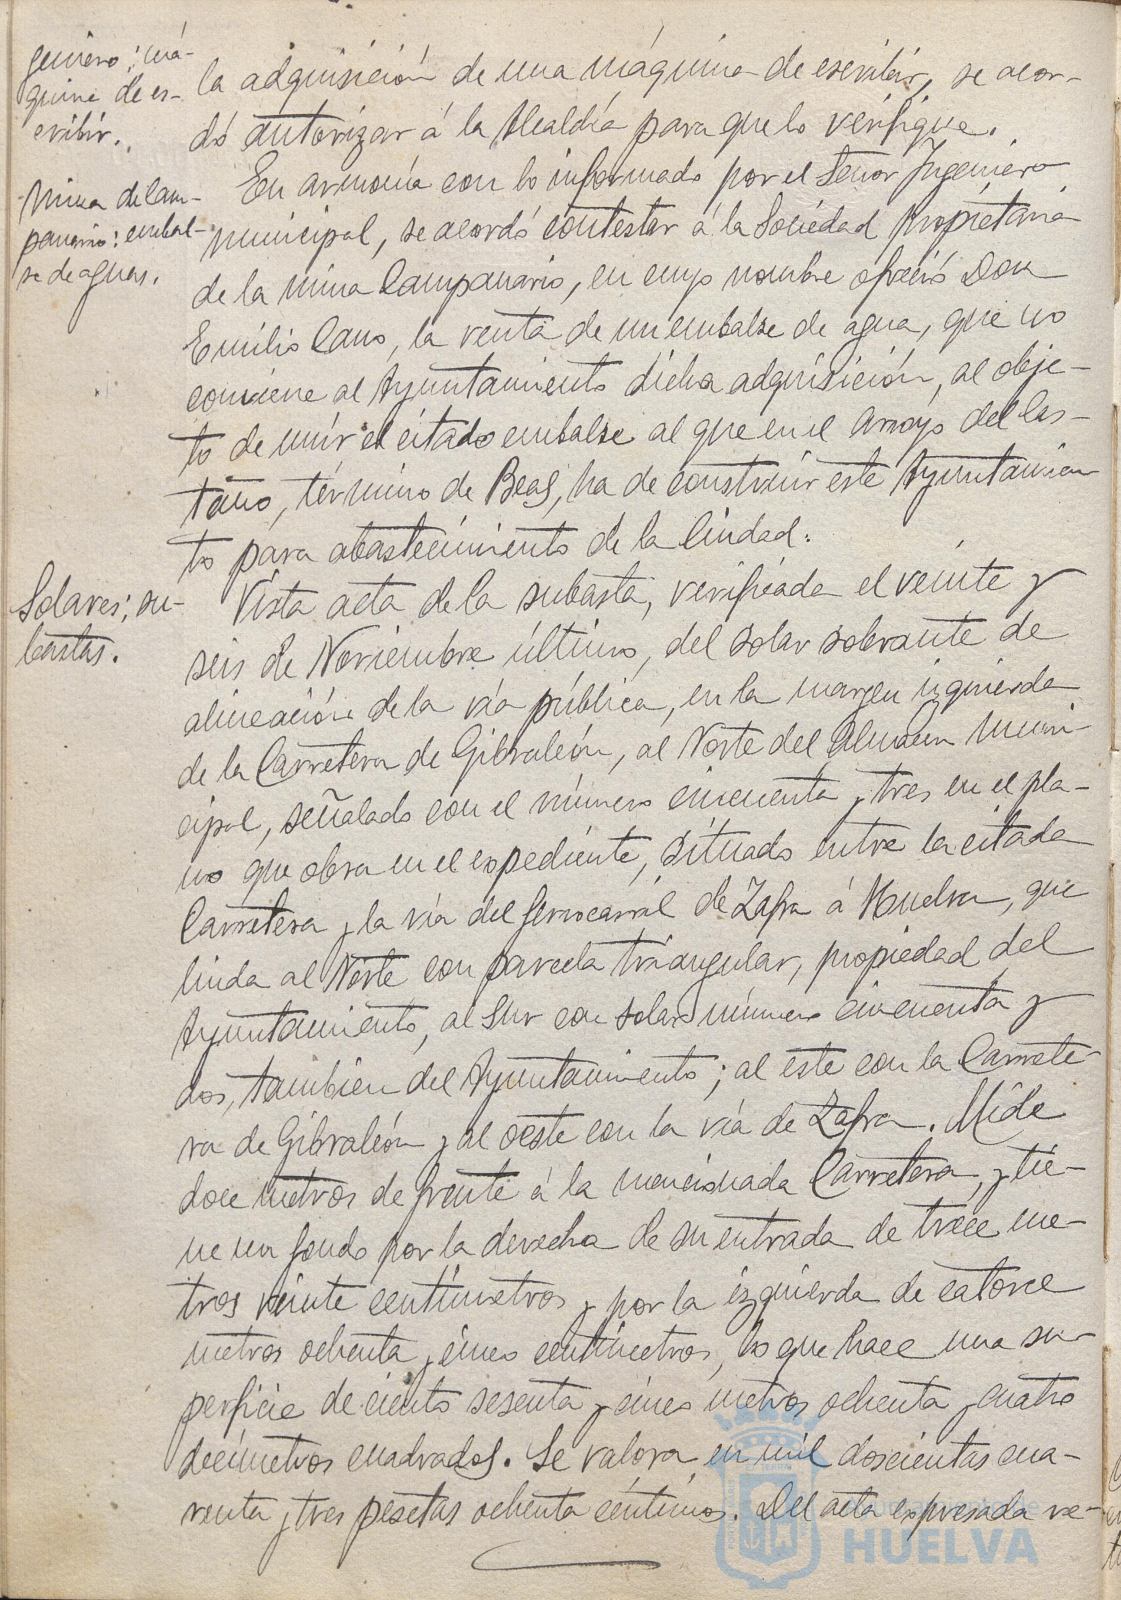 geniero; má-
quina de es-
cribir.
la adquisición de una máquina de escribir, se acor-
dó autorizar á la Alcaldía para que lo verifique.
Mina de Cam-
panario: embal-
se de aguas.
En armonía con lo informado por el Señor Ingeniero
municipal, se acordó contestar á la Sociedad propietaria
de la mina Campanario, en cuyo nombre ofreció Don
Emilio Cano, la venta de un embalse de agua, que no
conviene al Ayuntamiento dicha adquisición, al obje-
to de unir el citado embalse al que en el Arroyo del Cas-
taño, término de Beas, ha de construir este Ayuntamien-
to para abastecimiento de la Ciudad.
Solares; su-
bastas.
Vista acta de la subasta, verificada el veinte y
seis de Noviembre último, del solar sobrante de
alineación de la vía pública, en la margen izquierda
de la Carretera de Gibraleón, al Norte del Almacén muni-
cipal, señalado con el número cincuenta y tres en el pla-
no que obra en el expediente, situado entre la citada
Carretera y la vía del ferrocarril de Zafra á Huelva, que
linda al Norte con parcela triangular, propiedad del
Ayuntamiento, al Sur con solar número cincuenta y
dos, tambien del Ayuntamiento; al este con la Carrete-
ra de Gibraleón y al oeste con la vía de Zafra. Mide
doce metros de frente á la mencionada Carretera, y tie-
ne un fondo por la derecha de su entrada de trece me-
tros veinte centímetros y por la izquierda de catorce
metros ochenta y cinco centímetros, lo que hace una su-
perficie de ciento sesenta y cinco metros ochenta y cuatro
decímetros cuadrados. Se valora en mil doscientas cua-
renta y tres pesetas ochenta céntimos. Del acta expresada re-
HUELVA